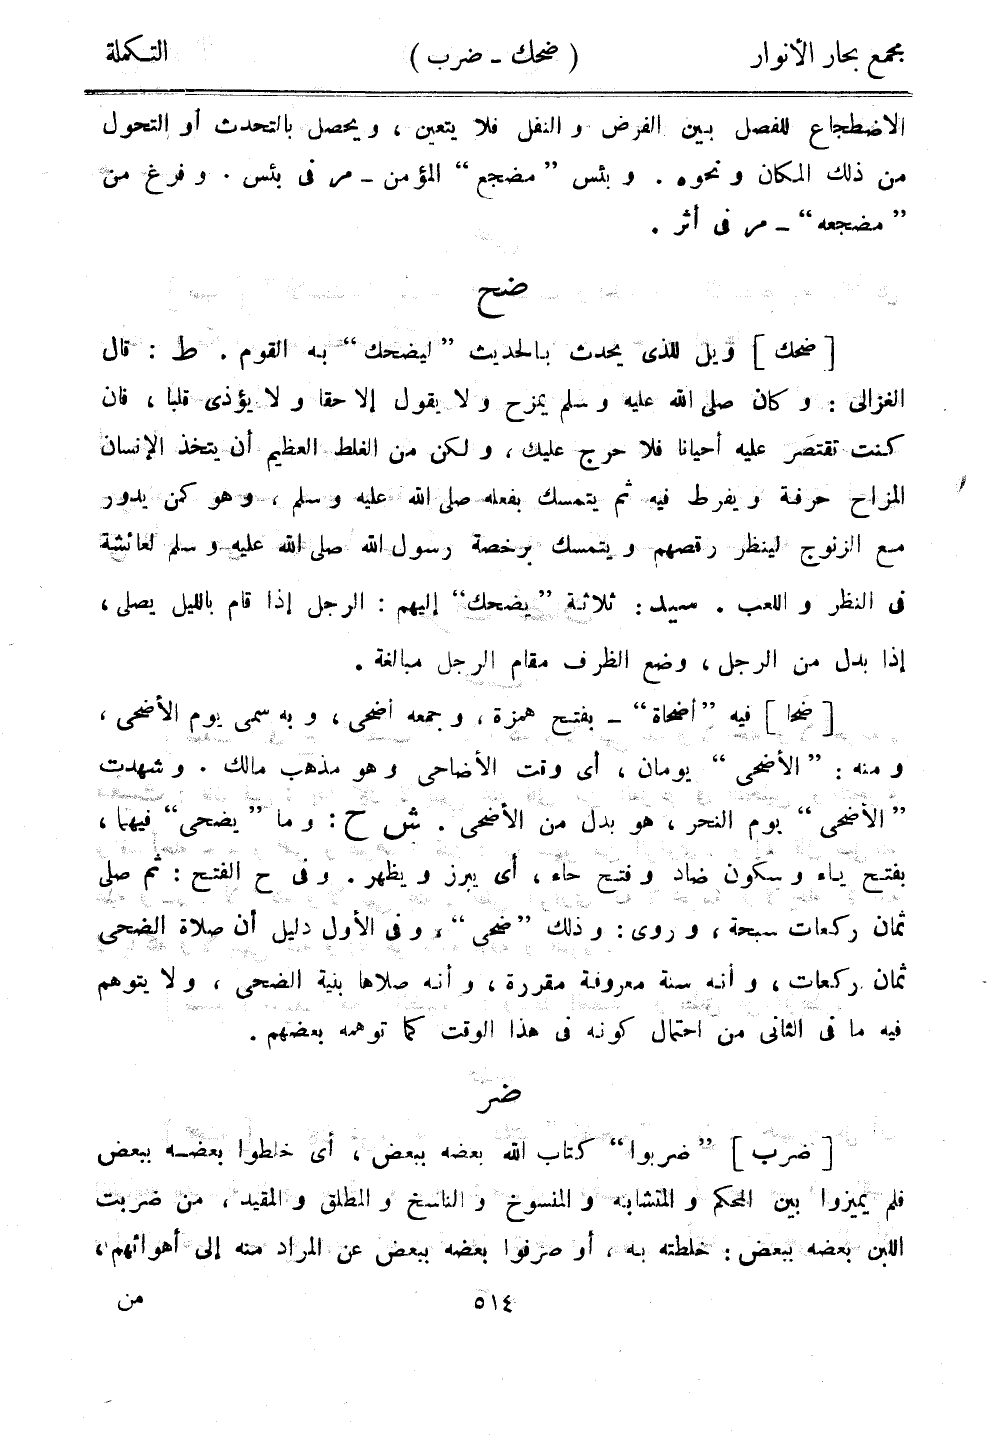 مجمع بحار الأنوار ( ضحك - ضرب ) التكملة
الاضطجاع للفصل بين الفرض و النفل فلا يتعين ، و يحصل بالتحدث أو التحول
من ذلك المكان و نحوه . و بئس ”مضجع“ المؤمن - مر فى بئس . و فرغ من
”مضجعه“ - مر فى أثر .
ضح
[ ضحك ] ويل للذى يحدث بالحديث ”ليضحك“ به القوم . ط : قال
الغزالى : و كان صلى الله عليه و سلم يمزح و لا يقول إلا حقا و لا يؤذى قلبا ، فان
كنت تقتصر عليه أحيانا فلا حرج عليك ، و لكن من الغلط العظيم أن يتخذ الإنسان
المزاح حرفة و يفرط فيه ثم يتمسك بفعله صلى الله عليه و سلم ، و هو كمن يدور
مع الزنوج لينظر رقصهم و يتمسك برخصة رسول الله صلى الله عليه و سلم لعائشة
فى النظر و اللعب . سيد : ثلاثة ”يضحك“ إليهم : الرجل إذا قام بالليل يصلى ،
إذا بدل من الرجل ، وضع الظرف مقام الرجل مبالغة .
[ ضحا ] فيه ”أضحاة“ - بفتح همزة ، و جمعه أضحى ، و به سمى يوم الأضحى ،
و منه : ”الأضحى“ يومان ، أى وقت الأضاحى و هو مذهب مالك . و شهدت
”الأضحى“ يوم النحر ، هو بدل من الأضحى . ش ح : و ما ”يضحى“ فيهما ،
بفتح ياء و سكون ضاد و فتح حاء ، أى يبرز و يظهر . و فى ح الفتح : ثم صلى
ثمان ركعات سبحة ، و روى : و ذلك ”ضحى“ ، و فى الأول دليل أن صلاة الضحى
ثمان ركعات ، و أنه سنة معروفة مقررة ، و أنه صلاها بنية الضحى ، و لا يتوهم
فيه ما فى الثانى من احتمال كونه فى هذا الوقت كما توهمه بعضهم .
ضر
[ ضرب ] ”ضربوا“ كتاب الله بعضه ببعض ، أى خلطوا بعضه ببعض
فلم يميزوا بين المحكم و المتشابه و المنسوخ و الناسخ و المطلق و المقيد ، من ضربت
اللبن بعضه ببعض : خلطته به ، أو صرفوا بعضه ببعض عن المراد منه إلى أهوائهم ،
٥١٤ من